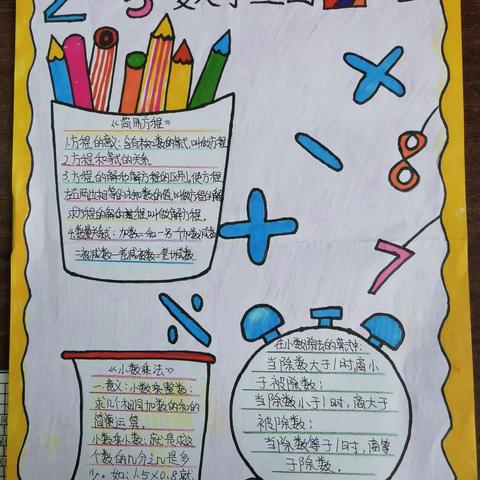 《简易方程》
1.方程的意义:含有未知数的等式,叫做方程
2.方程和等式的关系
3.方程的解和解方程的区别,使方程
左右两边相等的未知数的值,叫做方程的解
求方程的解的过程叫做解方程。
4.数量关系式:加数=和-另一个加数 减数
=被减数-差 减数=
8
7
《小数乘法》
一.意义:小数乘整数:
求几个相同加数的和的
简便运算。
小数乘小数:就是求这
个数的几分之几是多
少。如:1.5×0.8就
在小数除法的算式中:
当除数大于1时,商小
于被除数;
当除数小于1时,商大于
被除数;
当除数等于1时,商等
于除数。